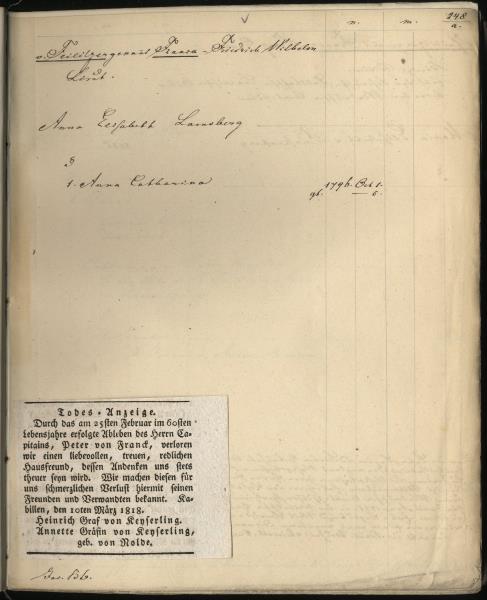 n. m. 248
a.
v. Franck - Friedrich Wilhelm
Lieut.
Anna Elisabeth Lamsberg
1. Anna Catharina gb. 1796. Oct 1.
6.
Todes-Anzeige.
Durch das am 25sten Februar im 60sten
Lebensjahre erfolgte Ableben des Herrn Ca-
pitains, Peter von Franck, verloren
wir einen liebevollen, treuen, redlichen
Hausfreund, dessen Andenken uns stets
theuer seyn wird. Wir machen diesen für
uns schmerzlichen Verlust hiermit seinen
Freunden und Verwandten bekannt. Ka-
billen, den 10ten März 1818.
Heinrich Graf von Keyserling.
Annette Gräfin von Keyserling,
geb. von Nolde.